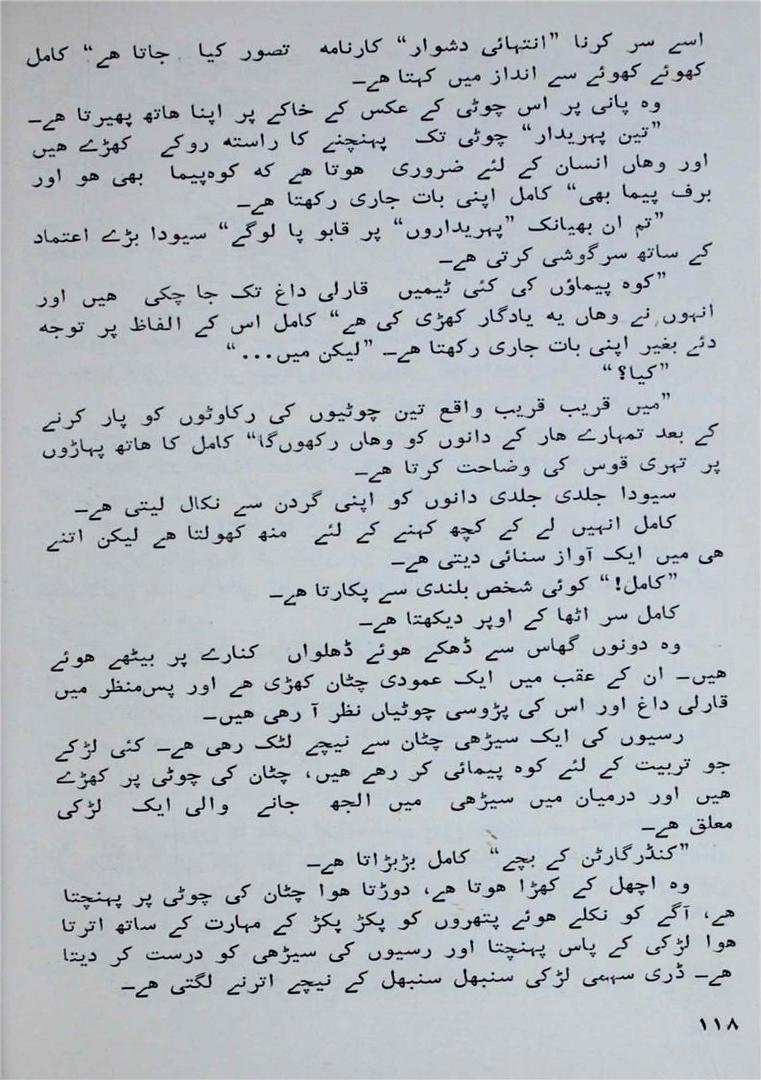 اسے سر کرنا ”انتہائی دشوار“ کارنامہ تصور کیا جاتا ہے“ کامل
کھوئے کھوئے سے انداز میں کہتا ہے۔
وہ پانی پر اس چوٹی کے عکس کے خاکے پر اپنا ہاتھ پھیرتا ہے۔
”تین پہریدار“ چوٹی تک پہنچنے کا راستہ روکے کھڑے ہیں
اور وہاں انسان کے لئے ضروری ہوتا ہے کہ کوہ‌پیما بھی ہو اور
برف پیما بھی“ کامل اپنی بات جاری رکھتا ہے۔
”تم ان بھیانک ”پہریداروں“ پر قابو پا لوگے“ سیودا بڑے اعتماد
کے ساتھ سرگوشی کرتی ہے۔
”کوہ پیماؤں کی کئی ٹیمیں قارلی داغ تک جا چکی ہیں اور
انہوں نے وہاں یہ یادگار کھڑی کی ہے“ کامل اس کے الفاظ پر توجہ
دئے بغیر اپنی بات جاری رکھتا ہے۔ ”لیکن میں...“
”کیا؟“
”میں قریب قریب واقع تین چوٹیوں کی رکاوٹوں کو پار کرنے
کے بعد تمہارے ہار کے دانوں کو وہاں رکھوں‌گا“ کامل کا ہاتھ پہاڑوں
پر تہری قوس کی وضاحت کرتا ہے۔
سیودا جلدی جلدی دانوں کو اپنی گردن سے نکال لیتی ہے۔
کامل انہیں لے کے کچھ کہنے کے لئے منھ کھولتا ہے لیکن اتنے
ہی میں ایک آواز سنائی دیتی ہے۔
”کامل!“ کوئی شخص بلندی سے پکارتا ہے۔
کامل سر اٹھا کے اوپر دیکھتا ہے۔
وہ دونوں گھاس سے ڈھکے ہوئے ڈھلواں کنارے پر بیٹھے ہوئے
ہیں۔ ان کے عقب میں ایک عمودی چٹان کھڑی ہے اور پس‌منظر میں
قارلی داغ اور اس کی پڑوسی چوٹیاں نظر آ رہی ہیں۔
رسیوں کی ایک سیڑھی چٹان سے نیچے لٹک رہی ہے۔ کئی لڑکے
جو تربیت کے لئے کوہ پیمائی کر رہے ہیں، چٹان کی چوٹی پر کھڑے
ہیں اور درمیان میں سیڑھی میں الجھ جانے والی ایک لڑکی
معلق ہے۔
”کنڈرگارٹن کے بچے“ کامل بڑبڑاتا ہے۔
وہ اچھل کے کھڑا ہوتا ہے، دوڑتا ہوا چٹان کی چوٹی پر پہنچتا
ہے، آگے کو نکلے ہوئے پتھروں کو پکڑ پکڑ کے مہارت کے ساتھ اترتا
ہوا لڑکی کے پاس پہنچتا اور رسیوں کی سیڑھی کو درست کر دیتا
ہے۔ ڈری سہمی لڑکی سنبھل سنبھل کے نیچے اترنے لگتی ہے۔
۱۱۸